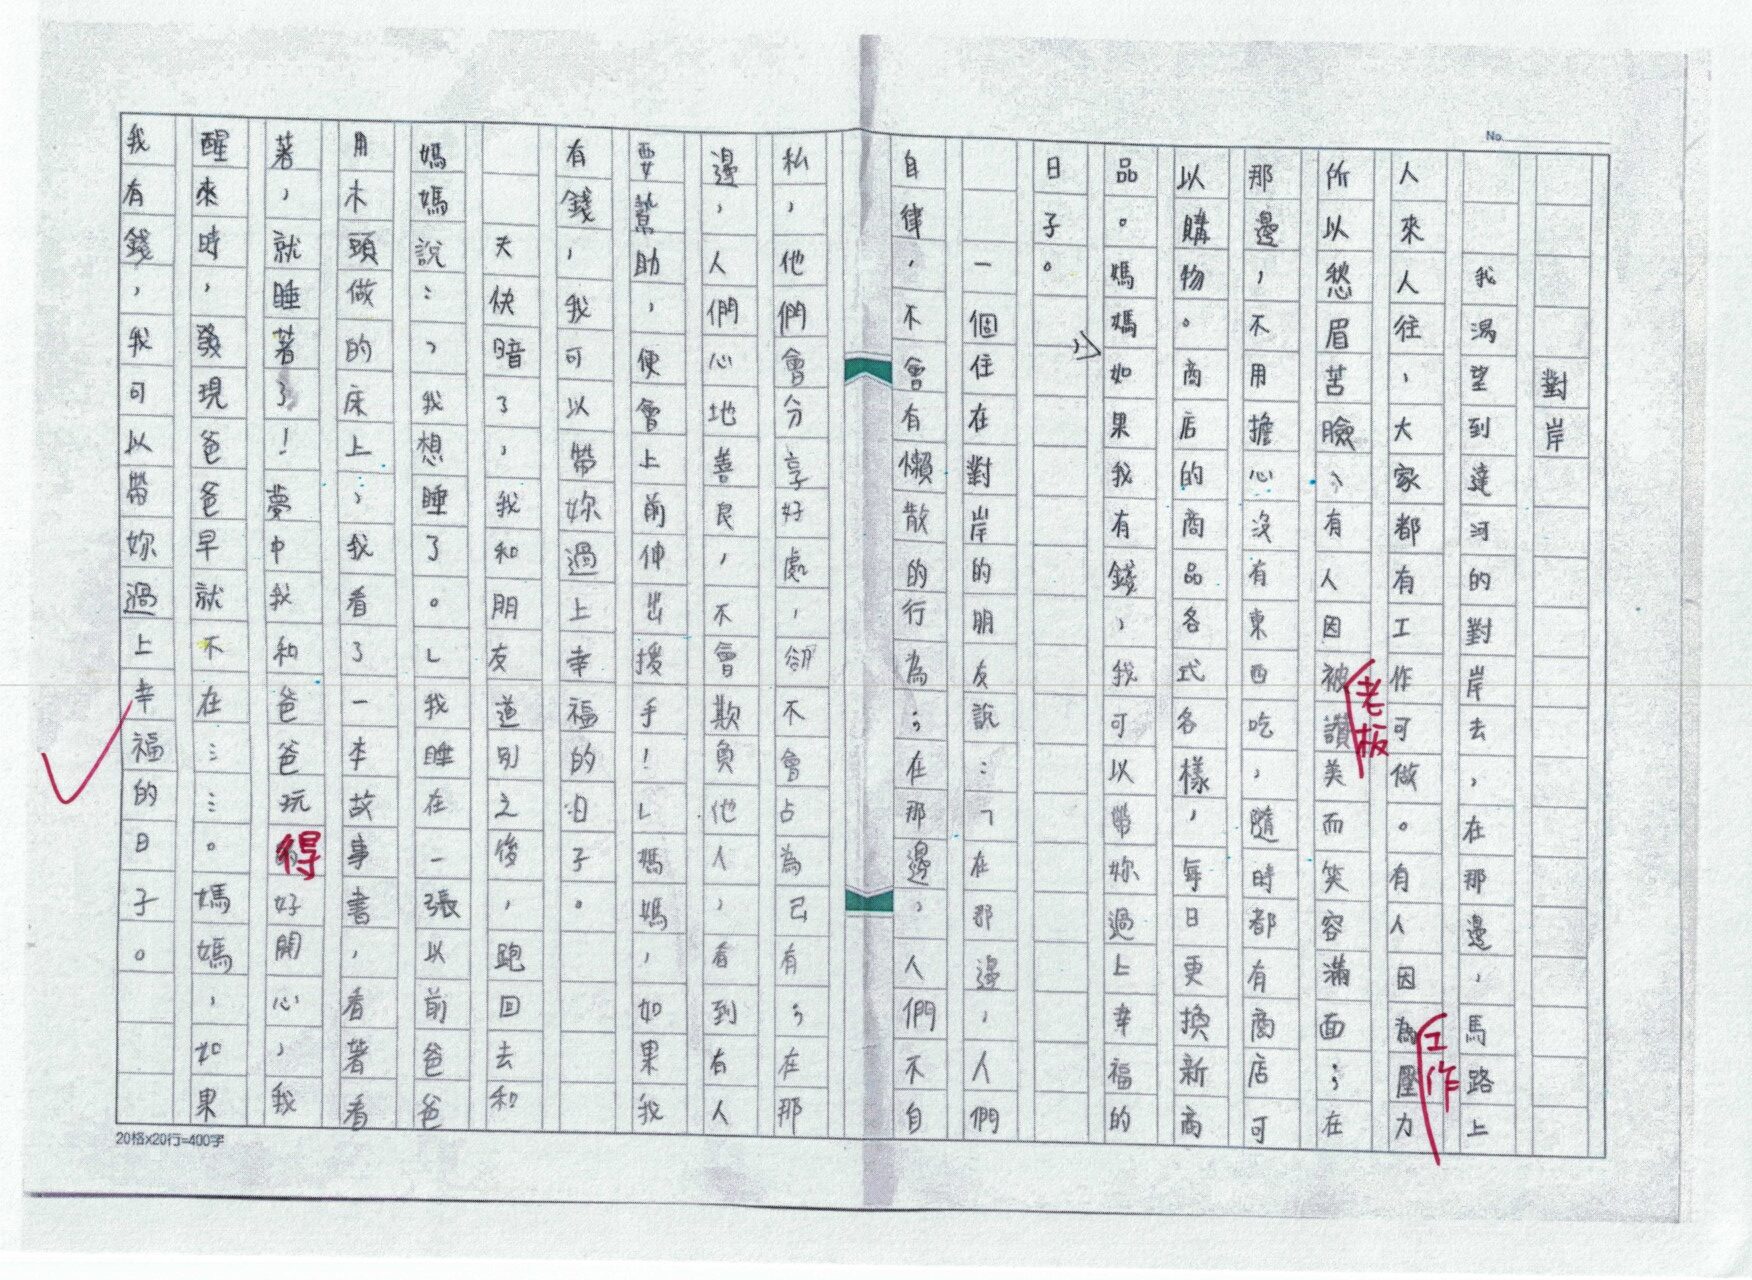 No.
對岸
我渴望到達河的對岸去，在那邊，馬路上
人來人往，大家都有工作可做。有人因為壓力
工作
所以愁眉苦臉；有人因被讚美而笑容滿面；在
老板
那邊，不用擔心沒有東西吃，隨時都有商店可
以購物。商店的商品各式各樣，每日更換新商
品。媽媽如果我有錢，我可以帶妳過上幸福的
日子。
一個住在對岸的朋友說：「在那邊，人們
自律，不會有懶散的行為；在那邊，人們不自
私，他們會分享好處，卻不會占為己有；在那
邊，人們心地善良，不會欺負他人，看到有人
要幫助，便會上前伸出援手！」媽媽，如果我
有錢，我可以帶妳過上幸福的日子。
天快暗了，我和朋友道別之後，跑回去和
媽媽說：，我想睡了。」我睡在一張以前爸爸
用木頭做的床上，我看了一本故事書，看著看
著，就睡著了！夢中我和爸爸玩得好開心，我
醒來時，發現爸爸早就不在……。媽媽，如果
我有錢，我可以帶妳過上幸福的日子。
20格×20行=400字